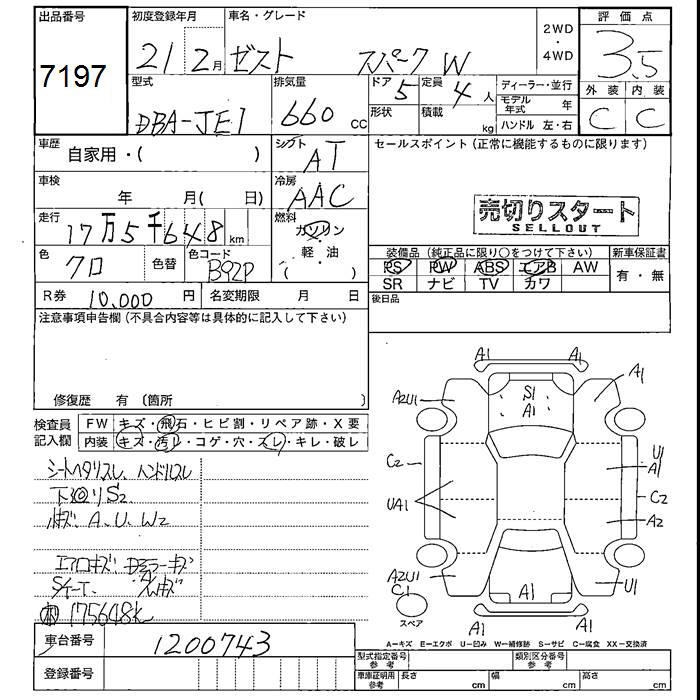 出品番号 初度登録年月 車名・グレード 2WD・4WD 評価点
7197 21 2月 ゼスト スパーク W 3.5
型式 排気量 ドア 定員 ディーラー・並行 外装 内装
DBA-JE1 660 cc 5 4人 モデル年式 年 C C
形状 積載 kg ハンドル 左・右
車歴 自家用・( ) シフト AT セールスポイント(正常に機能するものに限ります)
車検 年 月( 日) 冷房 AAC
売切りスタート
SELLOUT
走行 17万5千648km 燃料 ガソリン
軽・油
( )
色 クロ 色替 色コード B92P
装備品(純正品に限り○をつけて下さい) 新車保証書
PS PW ABS エアB AW 有・無
SR ナビ TV カワ
R券 10,000円 名変期限 月 日 後日品
注意事項申告欄(不具合内容等は具体的に記入して下さい)
修復歴 有 〔箇所 〕
検査員記入欄 FW キズ・飛石・ヒビ割・リペア跡・X要
内装 キズ・汚レ・コゲ・穴・スレ・キレ・破レ
シートヘタリスレ、ハンドルスレ
下回りS2
A、U、W2
エアロキズ ドアミラーキズ
175648K
A1 A1
A2U1 S1 A1 A1
C2 U1 A1
UA1 C2
A2
A2U1 C1 A1 U1
スペア A1 A1
A-キズ E-エクボ U-凹み W-補修跡 S-サビ C-腐食 XX-交換済
車台番号 1200743
型式指定番号 参考 類別区分番号 参考
登録番号
車庫証明用 参考 長さ cm 幅 cm 高さ cm